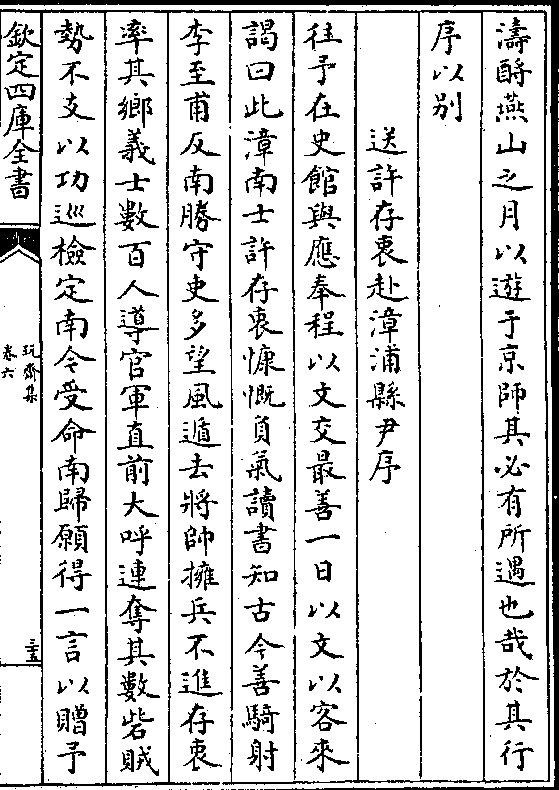 濤酹燕山之月以遊于京師其必有所遇也哉於其行
序以别
送許存衷赴漳浦縣尹序
往予在史館與應奉程以文交最善一日以文以客來
謁曰此漳南士許存衷慷慨負氣讀書知古今善騎射
李至甫反南勝守吏多望風遁去將帥擁兵不進存衷
率其鄉義士數百人導官軍直前大呼連奪其數砦賊
勢不支以功巡檢定南今受命南歸願得一言以贈予
欽定四庫全書
玩齋集
卷六
三五